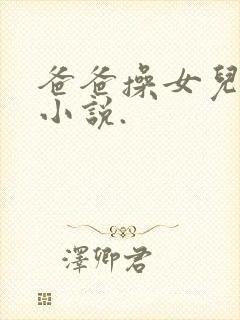 爸爸操女兒
小說.
澤卿君